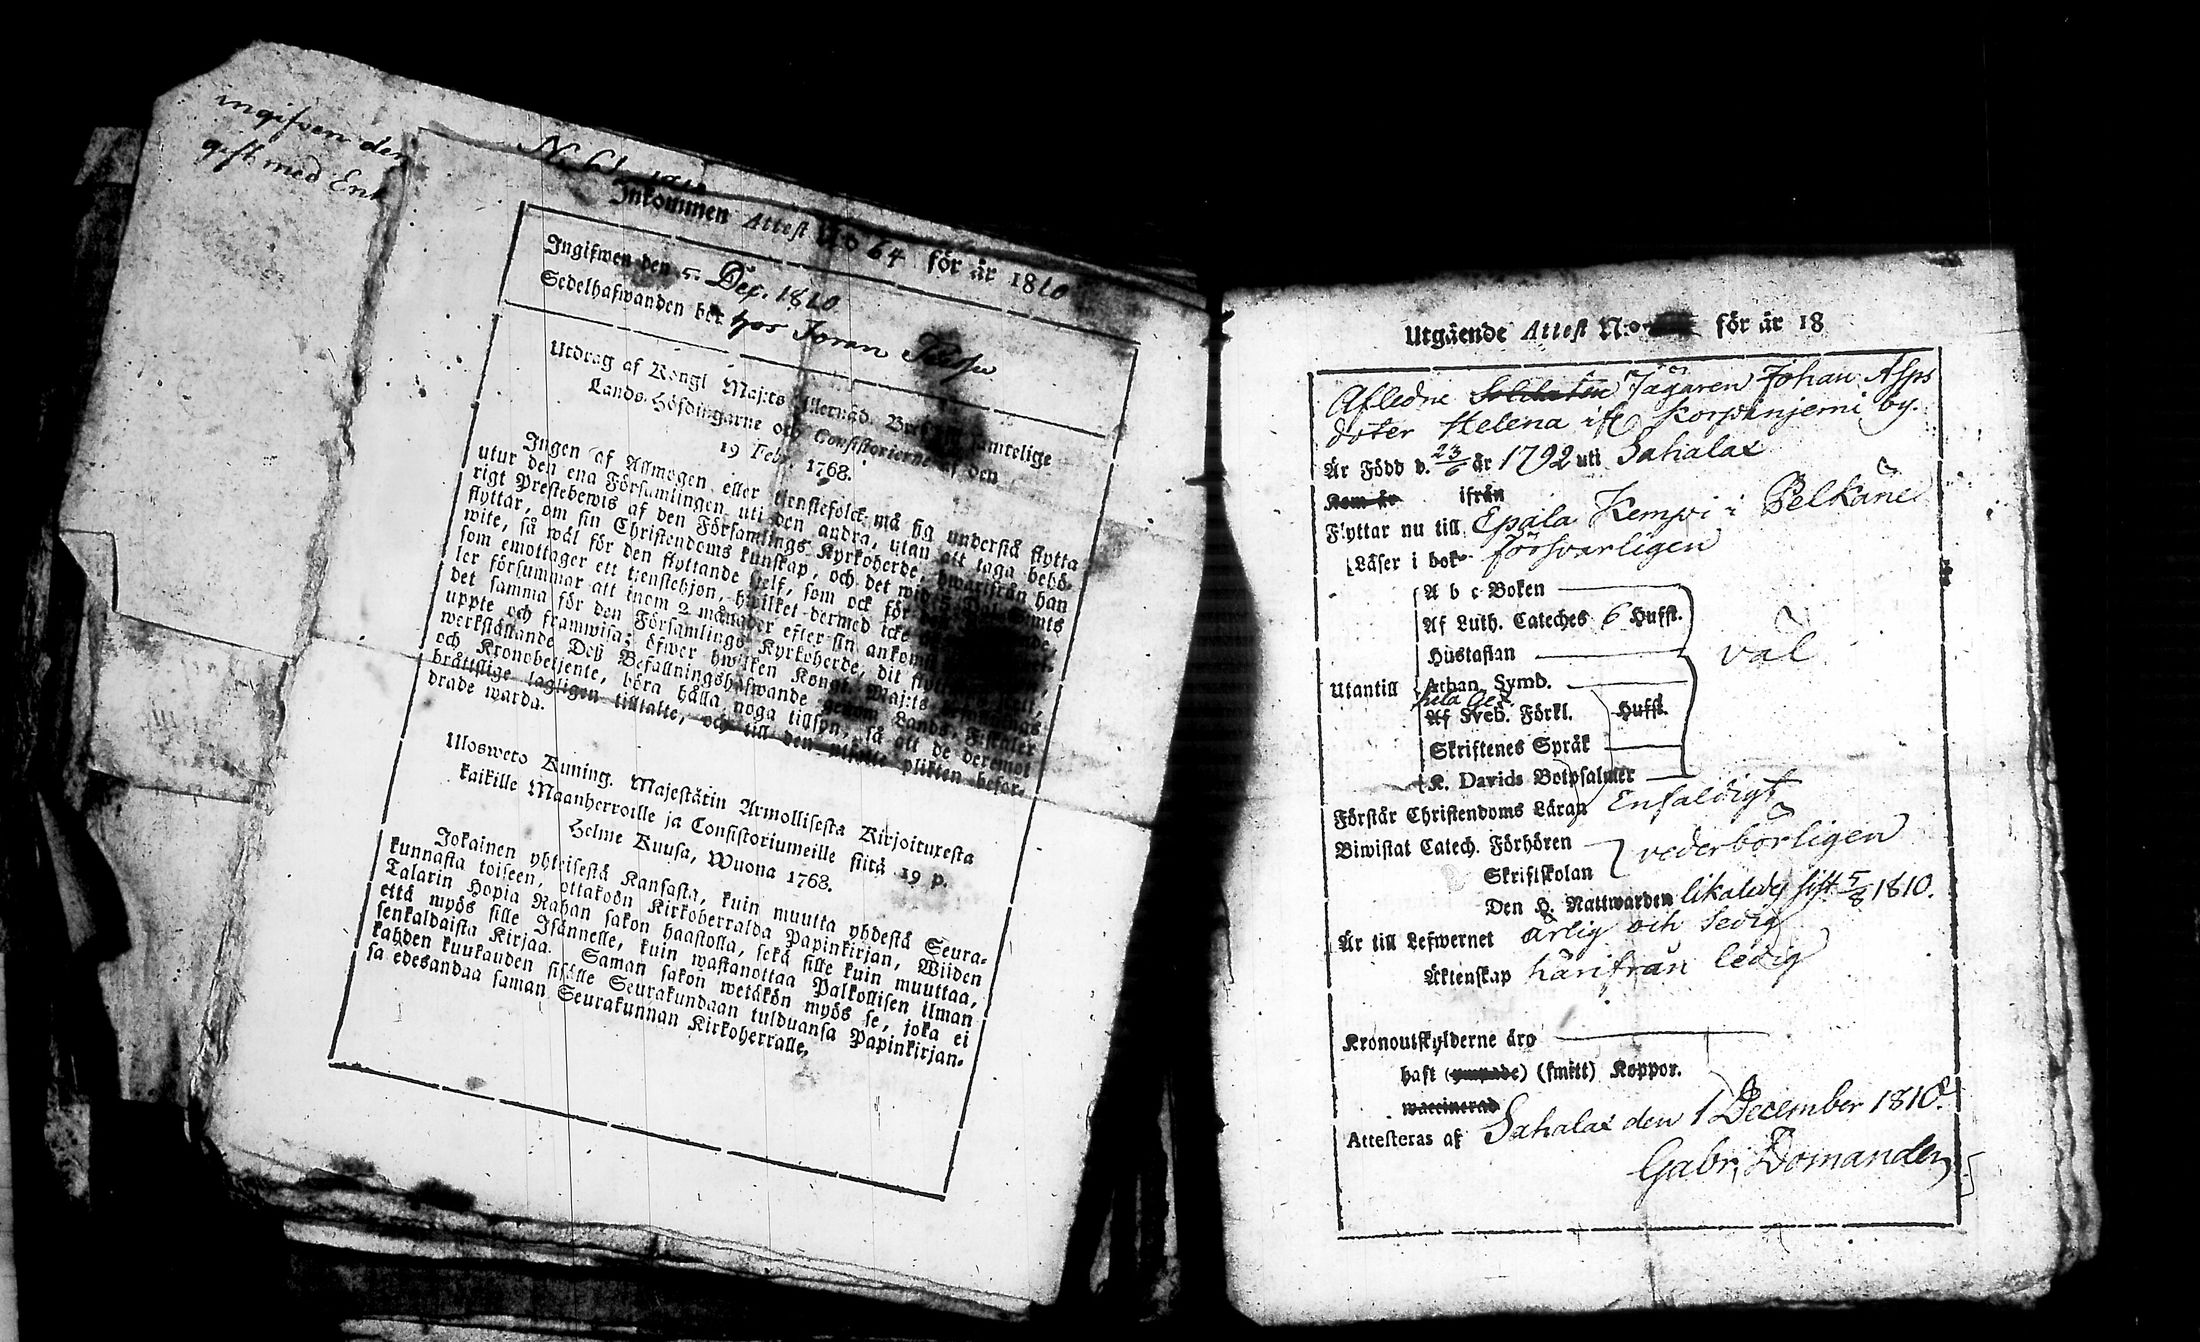 ingifven den
gift med Enk
Inkommen Attest N:o 64 för år 1810
Ingifwen den 5 Dec. 1810
Sedelhafwanden bor hos Joran
Utdrag af Kongl Maj:ts Allernåd. Bref till samtelige
Lands-Höfdingarne och Consistorierne af den
19 Febr. 1768.
Ingen af Allmogen eller tjenstefolck må sig understå flytta
utur den ena Församlingen uti den andra, utan att taga behö-
rigt Prestebewis af den Församlings Kyrkoherde, hwarifrån han
flyttar, om sin Christendoms kunskap, och det wid 5 Dal. S:mts
wite, så wäl för den flyttande sjelf, som ock för
som emottager ett tjenstehjon, hwilket dermed icke
ler försummar att inom 2 månader efter sin ankomst
det samma för den Församlings Kyrkoherde, dit
uppte och framwisa; öfwer hwilken Kongl. Maj:ts
werkställande Deß Befallningshafwande genom Lands-Fiskaler
och Kronobetjente, böra hålla noga tillsyn, så att de deremot
bråttslige lagligen tilltalte, och till den utsatte plikten befor-
drade warda.
Ulosweto Kuning. Majestätin Armollisesta Kirjoituxesta
kaikille Maanherroille ja Consistoriumeille siitä 19 p.
Helme Kuusa, Wuona 1768.
Jokainen yhteisestä Kansasta, kuin muutta yhdestä Seura-
kunnasta toiseen, ottakoon Kirkoherralda Papinkirjan, Wiiden
Talarin Hopia Rahan sakon haastolla, sekä sille kuin muuttaa,
että myös sille Isännelle, kuin wastanottaa Palkollisen ilman
senkaldaista Kirjaa. Saman sakon wetäkön myös se, joka ei
kahden kuukauden sisälle Seurakundaan tulduansa Papinkirjan-
sa edesandaa saman Seurakunnan Kirkoherralle.
Utgående Attest N:o för år 18
Afledne Soldaten Jägaren Johan Asps
doter Helena ifr. Korpinjemi by.
Är Född d. 23/6 år 1792 uti Sahalax
Kom år ifrån
Flyttar nu till Epala Kempi i Pelkäne
Läser i bok försvarligen
A b c Boken
Af Luth. Cateches 6 Hufst.
Hustaflan
väl
Utantill Athan. Symb.
hela
Af Sveb. Förkl. Hufst.
Skriftenes Språk
K. Davids Botpsalmer
Förstår Christendoms Läran Enfaldigt
Biwistat Catech. Förhören
vederbörligen
Skriftskolan
Den H. Nattwarden likaledes sist 5/8 1810.
Är till Lefwernet ärlig och sedig
Äktenskap härifrån ledig
Kronoutskylderne äro
haft (ympade) (smitt) Koppor.
waccinerad
Attesteras af Sahalax den 1 December 1810.
Gabr. Domander